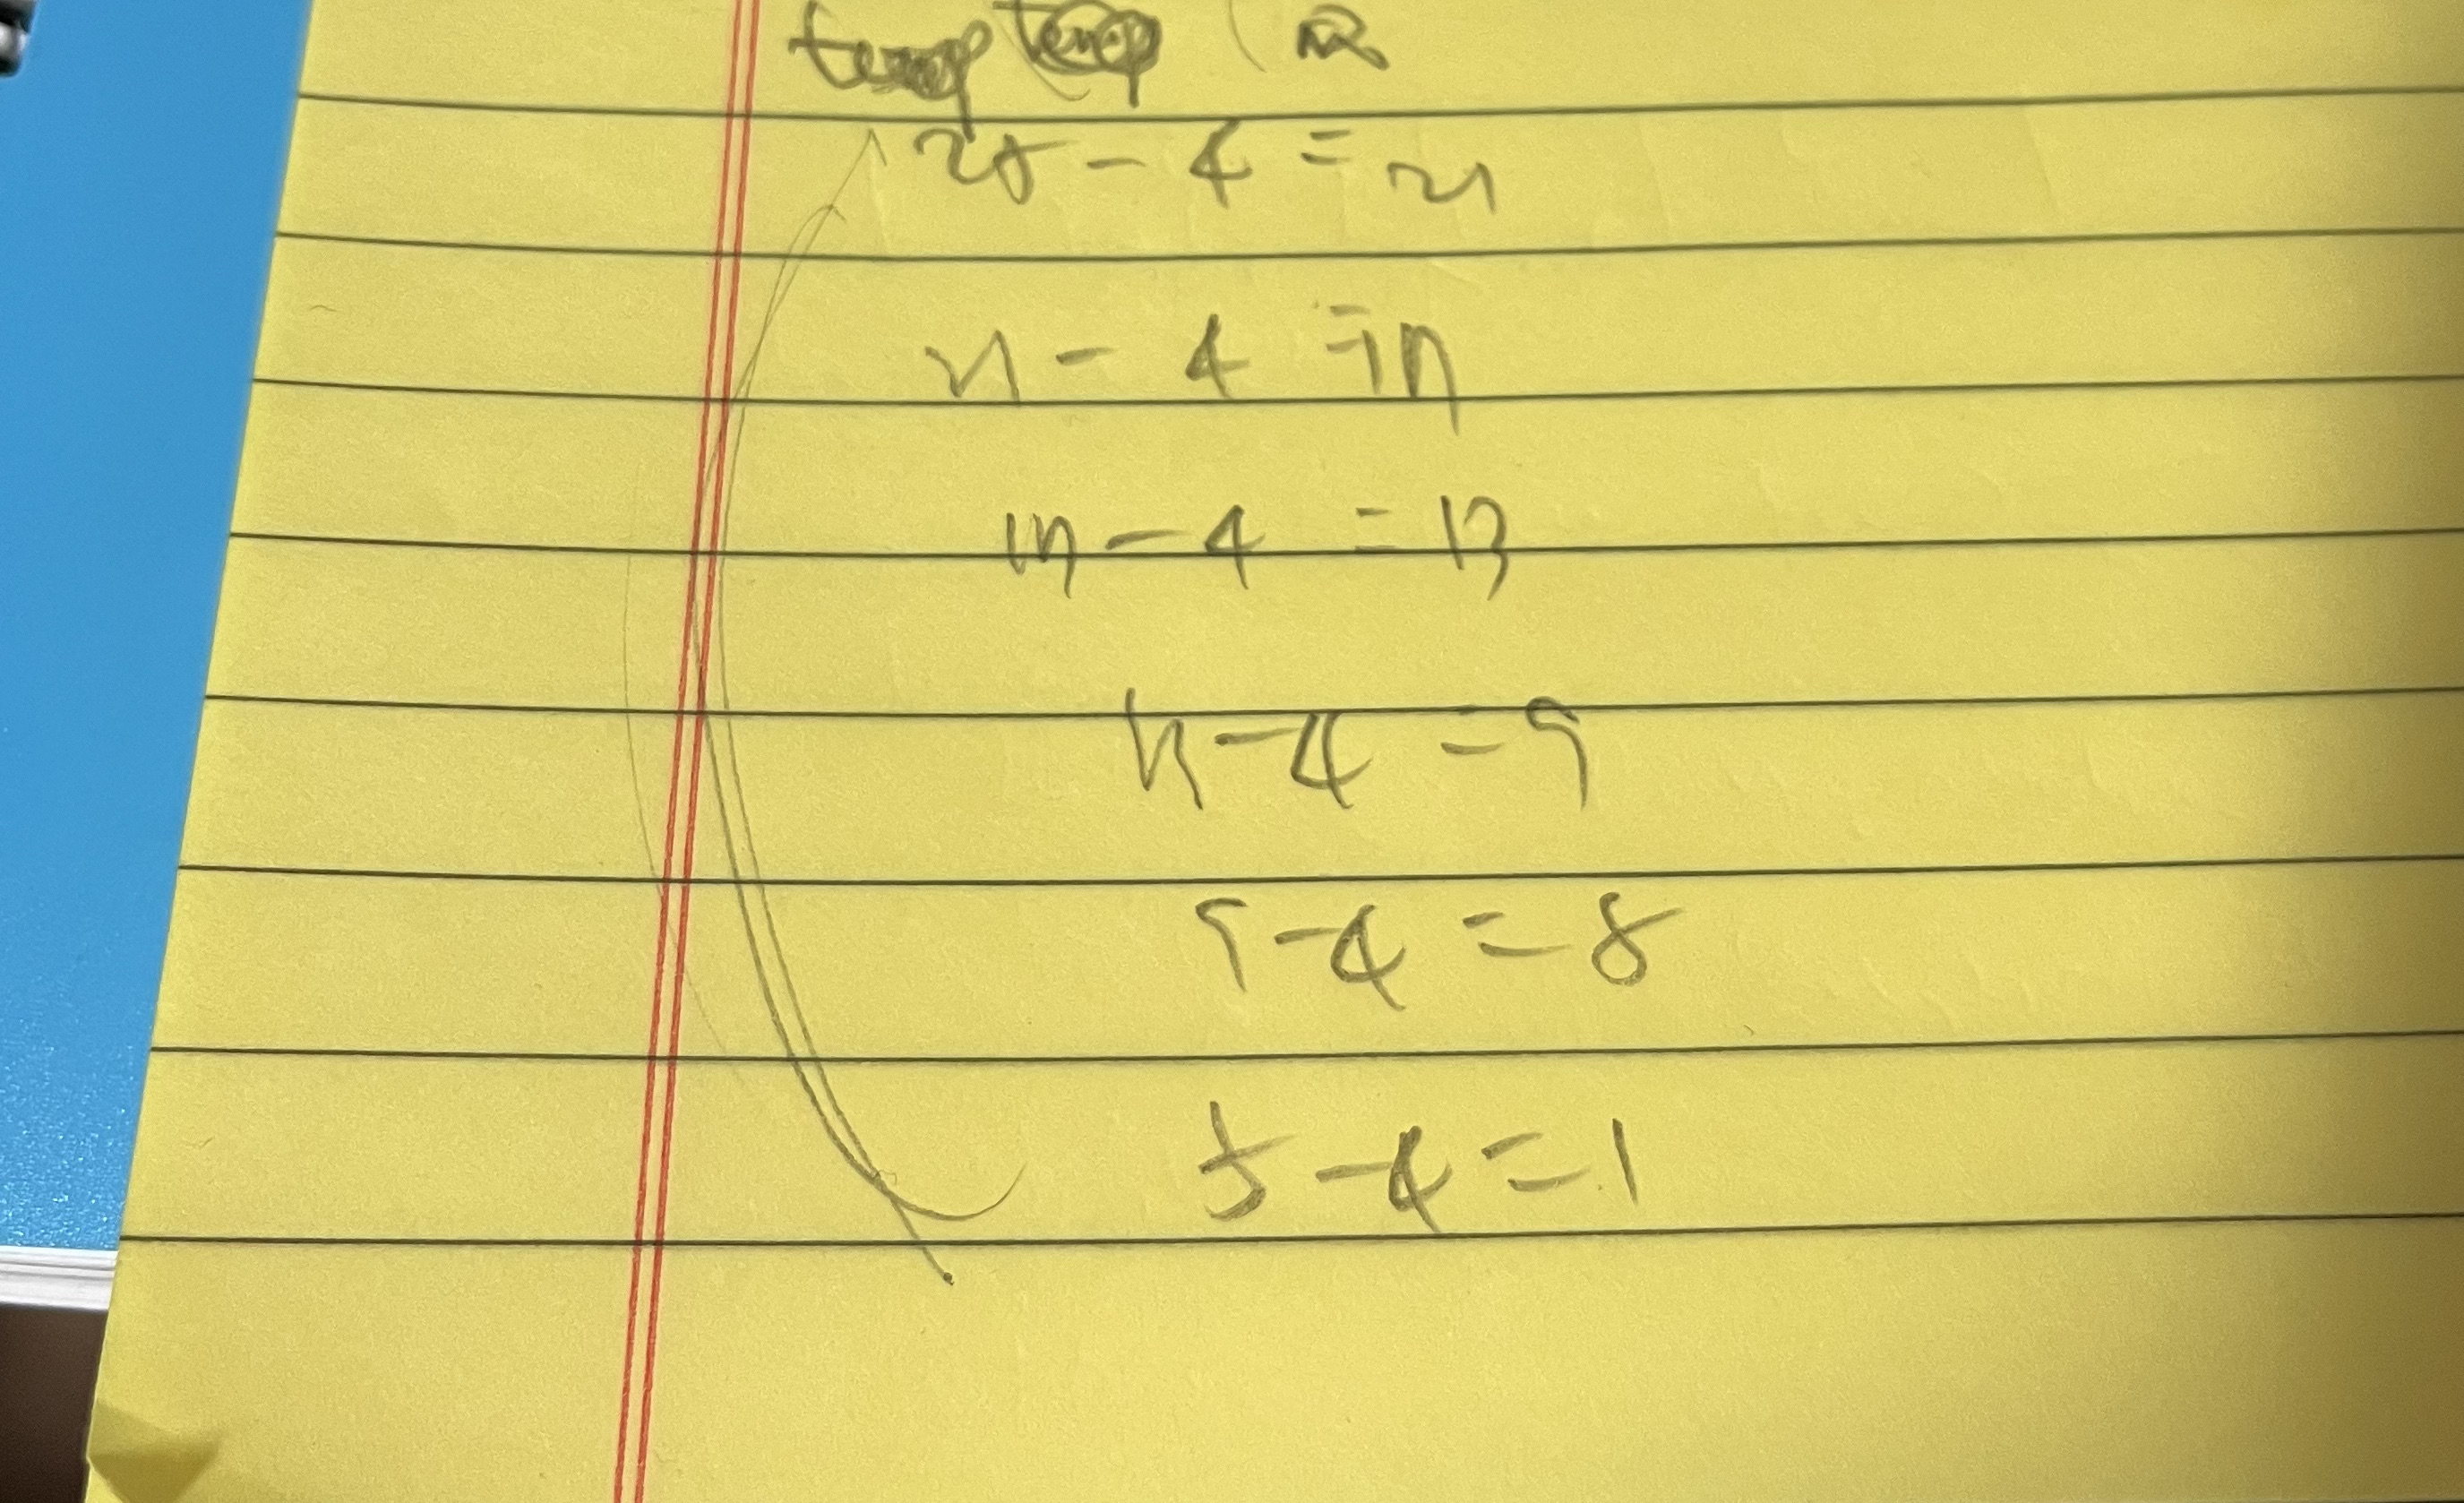 25 - 4 = 21
21 - 4 = 17
17 - 4 = 13
13 - 4 = 9
9 - 4 = 8
5 - 4 = 1